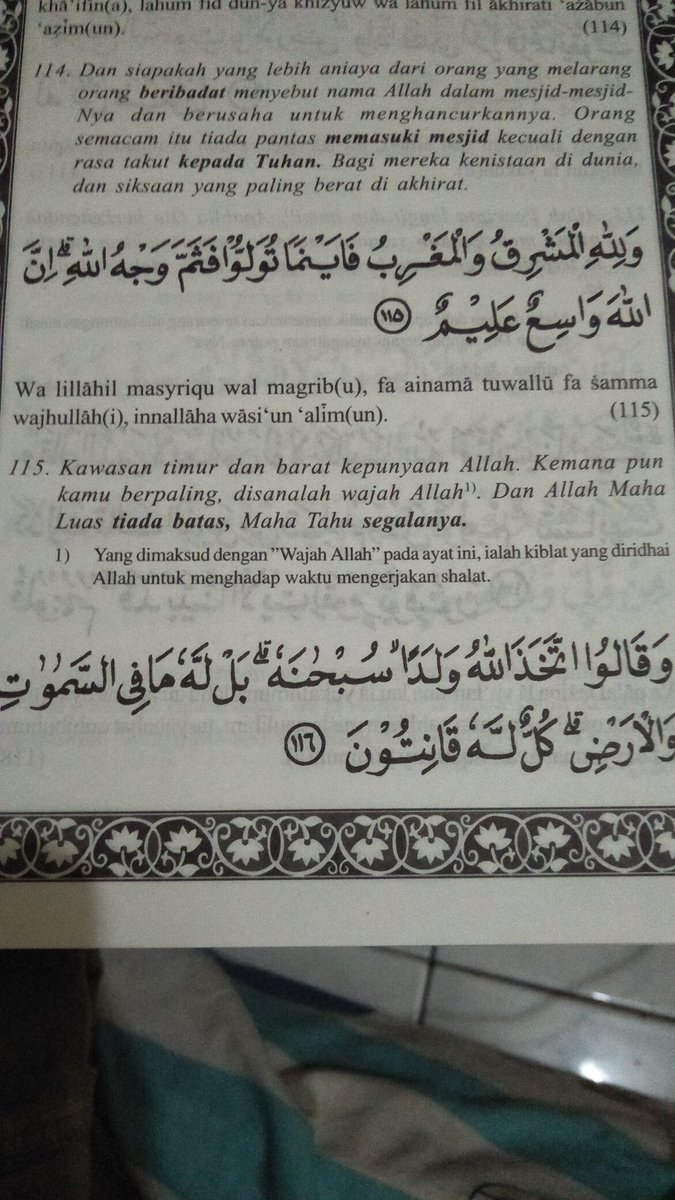 khā'ifīn(a), lahum fid dun-ya khizyuw wa lahum fil ākhirati 'ażābun
'aẓīm(un). (114)
114. Dan siapakah yang lebih aniaya dari orang yang melarang
orang beribadat menyebut nama Allah dalam mesjid-mesjid-
Nya dan berusaha untuk menghancurkannya. Orang
semacam itu tiada pantas memasuki mesjid kecuali dengan
rasa takut kepada Tuhan. Bagi mereka kenistaan di dunia,
dan siksaan yang paling berat di akhirat.
وَلِلّٰهِ الْمَشْرِقُ وَالْمَغْرِبُ فَاَيْنَمَا تُوَلُّوْا فَثَمَّ وَجْهُ اللّٰهِ ۗ اِنَّ
اللّٰهَ وَاسِعٌ عَلِيْمٌ ١١٥
Wa lillāhil masyriqu wal magrib(u), fa ainamā tuwallū fa ṡamma
wajhullāh(i), innallāha wāsi‘un ‘alīm(un). (115)
115. Kawasan timur dan barat kepunyaan Allah. Kemana pun
kamu berpaling, disanalah wajah Allah¹⁾. Dan Allah Maha
Luas tiada batas, Maha Tahu segalanya.
1) Yang dimaksud dengan ”Wajah Allah” pada ayat ini, ialah kiblat yang diridhai
Allah untuk menghadap waktu mengerjakan shalat.
وَقَالُوا اتَّخَذَ اللّٰهُ وَلَدًا ۙ سُبْحٰنَهٗ ۗ بَلْ لَّهٗ مَا فِى السَّمٰوٰتِ
وَالْاَرْضِ ۗ كُلٌّ لَّهٗ قَانِتُوْنَ ١١٦